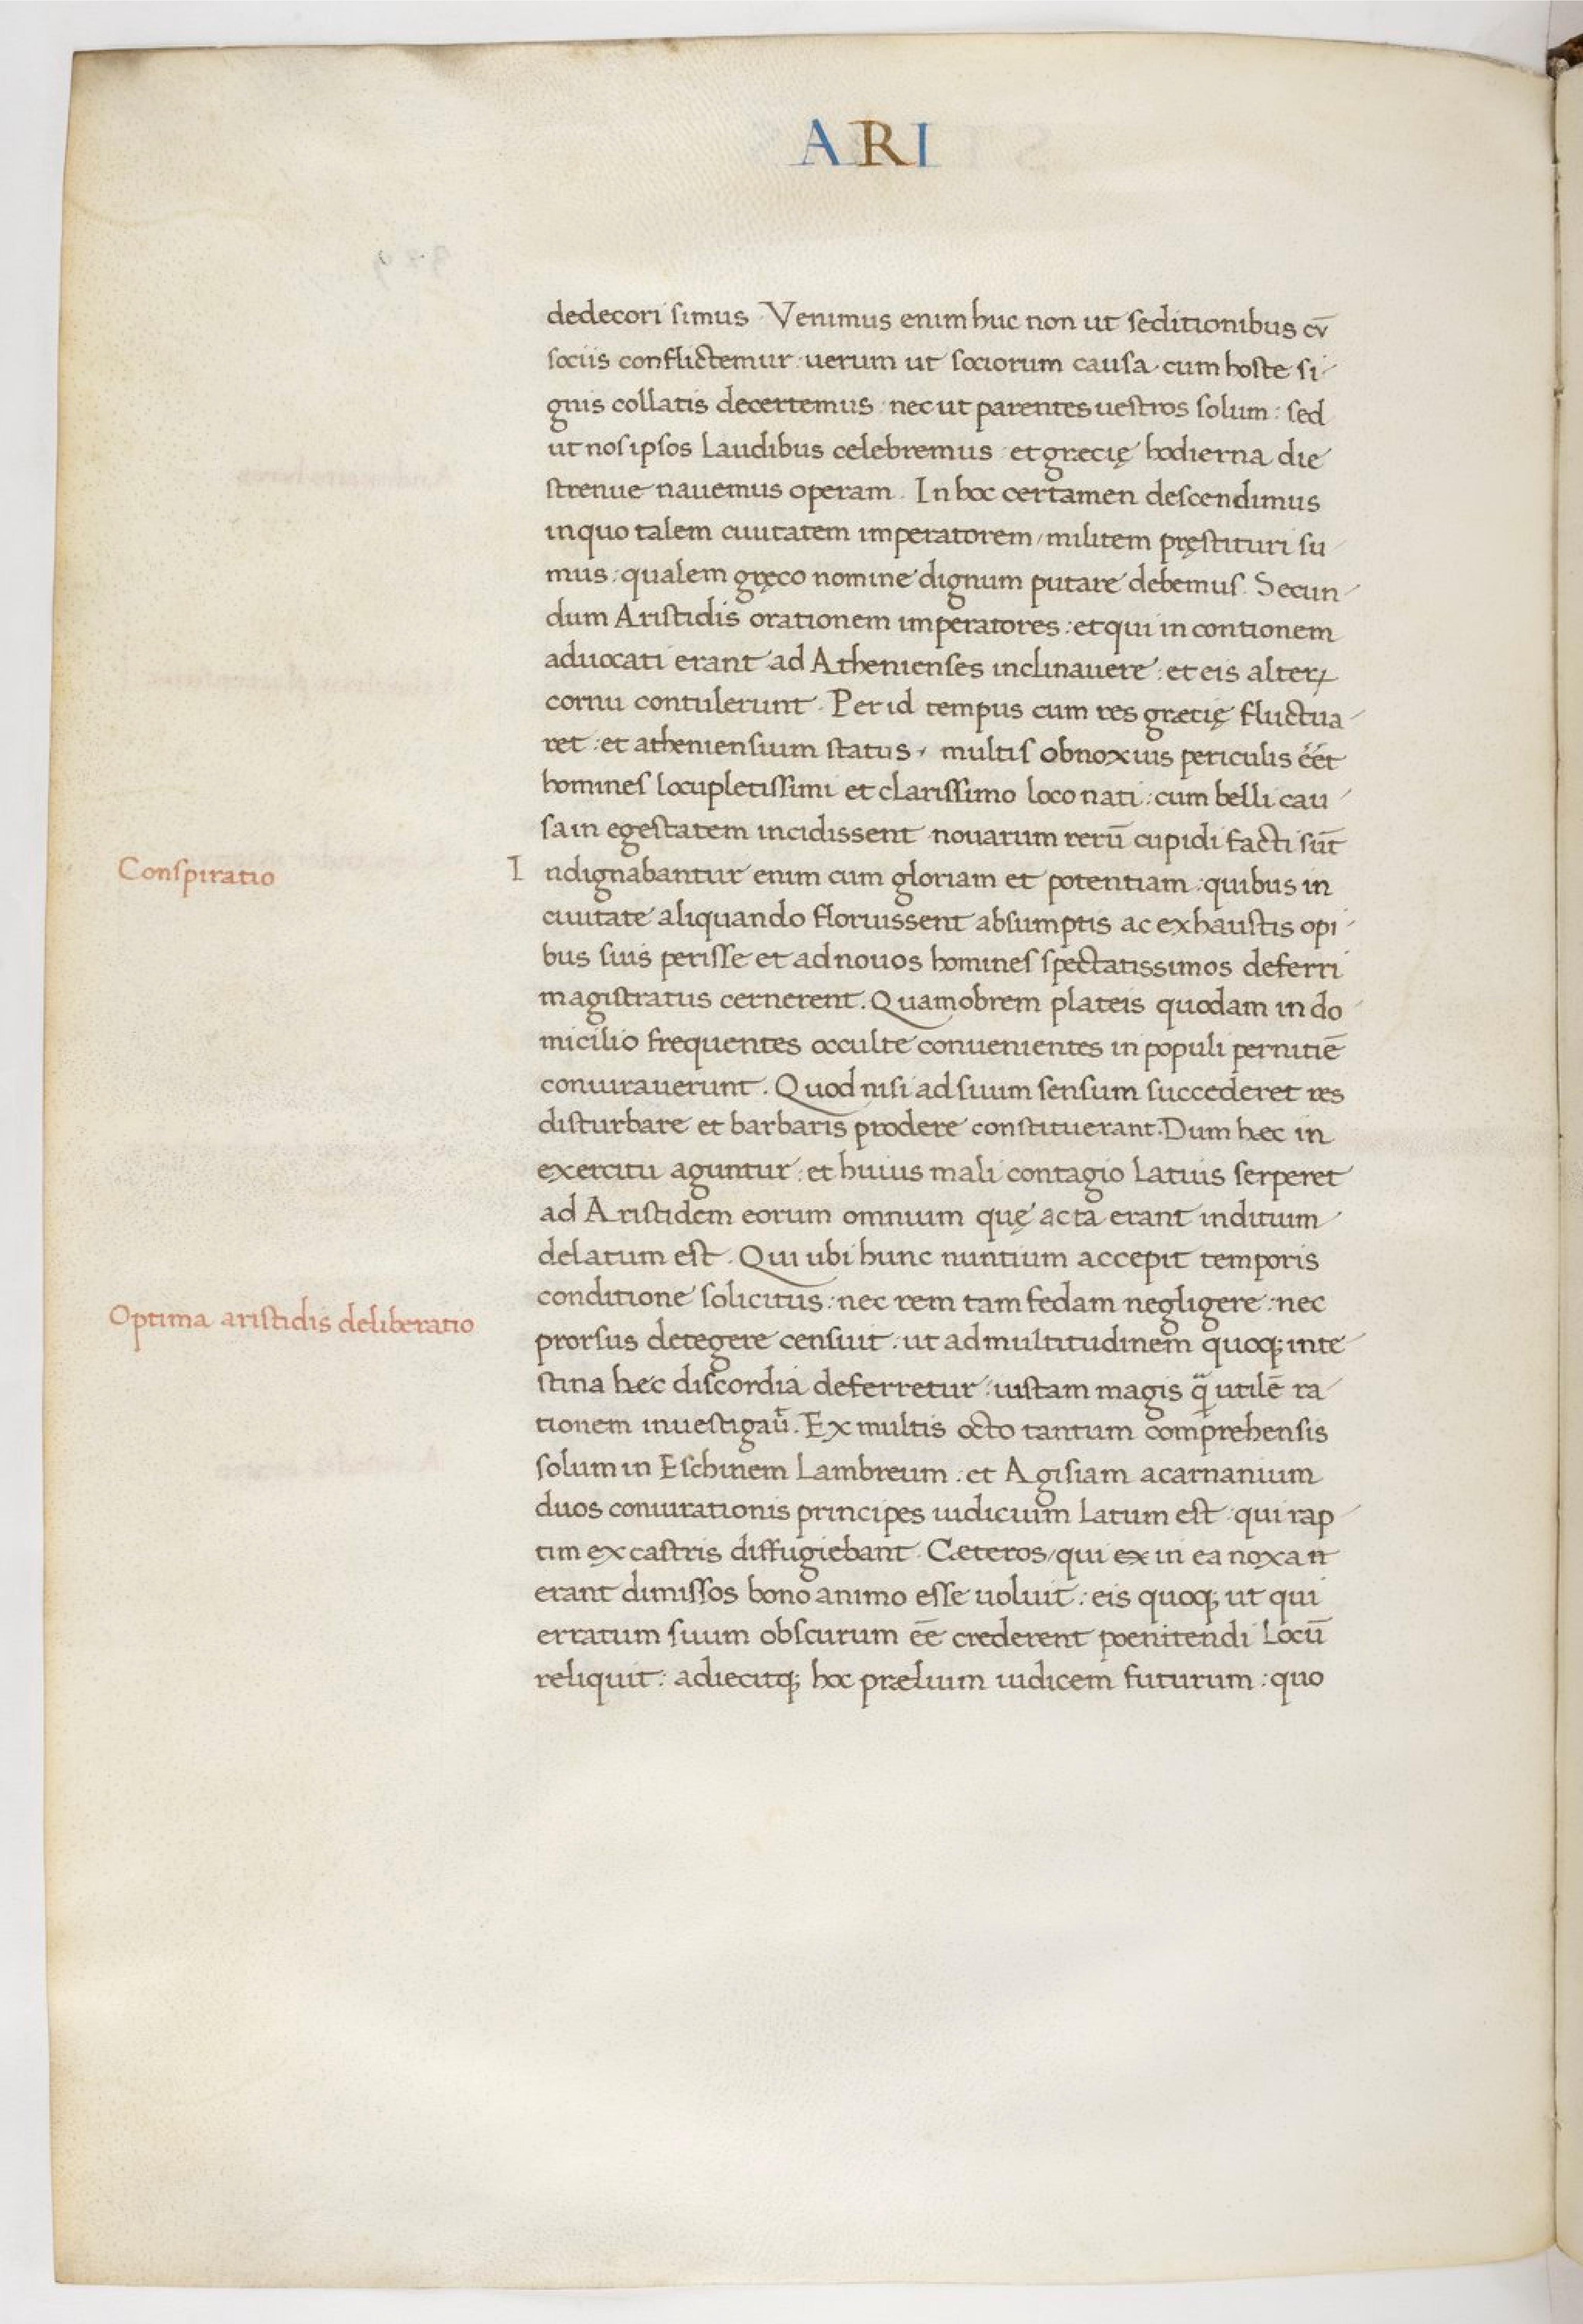 ARI
dedecori simus Venimus enim huc non ut seditionibus cū
sociis conflictemur: uerum ut sociorum causa cum hoste si
gnis collatis decertemus: nec ut parentes uestros solum: sed
ut nos ipsos laudibus celebremus et grecię hodierna die
strenue nauemus operam. In hoc certamen descendimus
in quo talem ciuitatem imperatorem/ militem pręstituri su
mus: qualem gręco nomine dignum putare debemus. Secun
dum Aristidis orationem imperatores: et qui in contionem
aduocati erant ad Athenienses inclinauere: et eis alterꝝ
cornu contulerunt. Per id tempus cum res grætię fluctua
ret: et atheniensium status, multis obnoxius periculis éét
homines locupletissimi et clarissimo loco nati: cum belli cau
sa in egestatem incidissent nouarum rerū cupidi facti sūt
Conspiratio
Indignabantur enim cum gloriam et potentiam: quibus in
ciuitate aliquando floruissent absumptis ac exhaustis opi
bus suis perisse et ad nouos homines spectatissimos deferri
magistratus cernerent. Quamobrem plateis quodam in do
micilio frequentes occulte conuenientes in populi pernitiē
coniurauerunt. Quod nisi ad suum sensum succederet res
disturbare et barbaris prodere constituerant. Dum hæc in
exercitu aguntur: et huius mali contagio latius serperet
ad Aristidem eorum omnium quę acta erant inditium
delatum est. Qui ubi hunc nuntium accepit temporis
conditione solicitus: nec rem tam fedam negligere: nec
Optima aristidis deliberatio
prorsus detegere censuit: ut ad multitudinem quoq; inte
stina hæc discordia deferretur: iustam magis q̄ utilē ra
tionem inuestigaūt. Ex multis octo tantum comprehensis
solum in Eschinem Lambreum: et Agisiam acarnanium
duos coniurationis principes iudicium latum est: qui rap
tim ex castris diffugiebant. Cæteros/ qui ex in ea noxa n̄
erant dimissos bono animo esse uoluit: eis quoq; ut qui
erratum suum obscurum eē crederent poenitendi locū
reliquit: adiecitq; hoc prælium iudicem futurum: quo